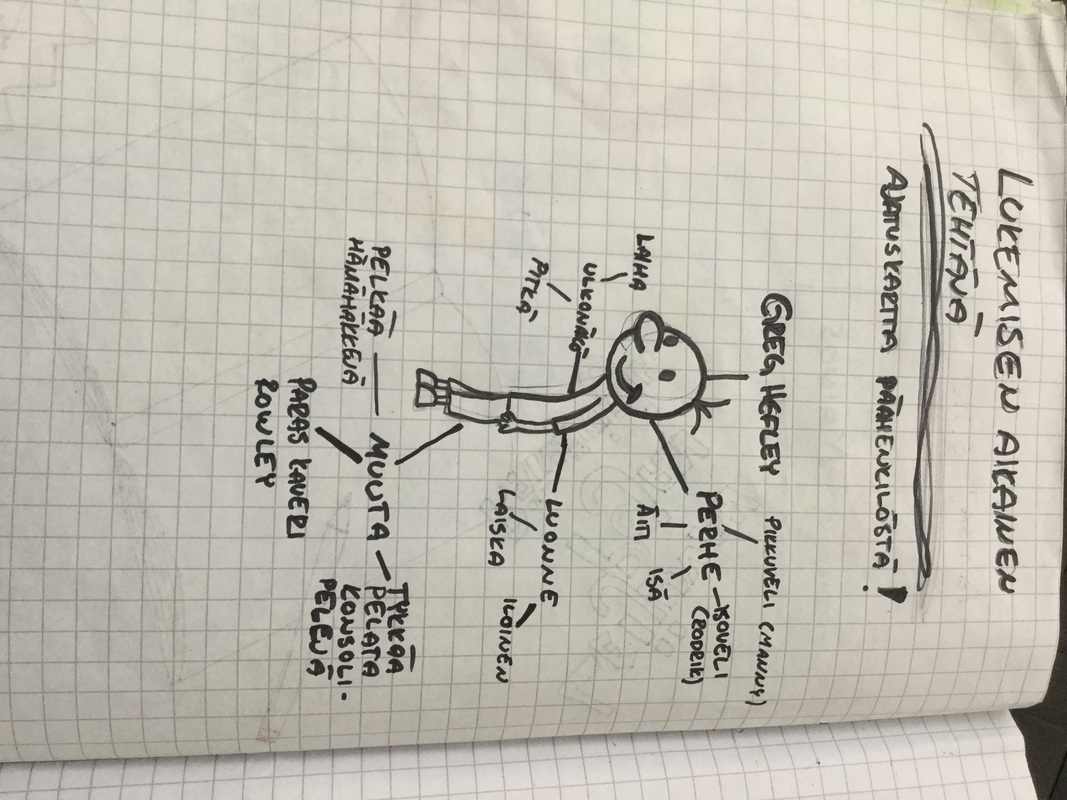 LUKEMISEN AIKAINEN
TEHTÄNÄ
AJATUSKARTTA PÄÄHENKILÖSTÄ!
GREG HEFLEY
PIKKUVELI (MANNY)
PERHE
ISOVELI
(RODRIK)
ÄITI
ISÄ
LAIHA
ULKONÄKÖ
PITKÄ
LUONNE
LAISKA
ILOINEN
PELKÄÄ
HÄMÄHÄKKEJÄ
MUUTA
TYKKÄÄ
PELATA
KONSOLI-
PELEJÄ
PARAS KAVERI
ROWLEY